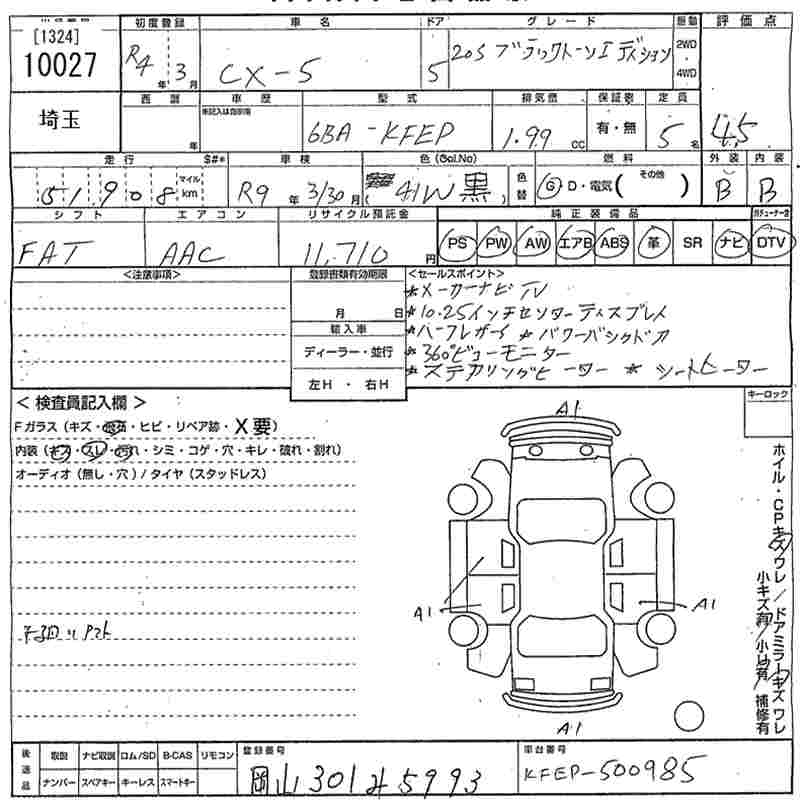 [1324]
10027
埼玉
初度登録
R4 年 3 月
車名
CX-5
ドア
5
グレード
20S ブラックトーンエディション
駆動
2WD
4WD
評価点
4.5
西暦
年
車歴
未記入は自家用
型式
6BA-KFEP
排気量
1.99 CC
保証書
有・無
定員
5 名
走行
51,908
マイル
km
S#*
車検
R9 年 3/30 月
色(Col.No)
41W 黒
色替
燃料
G D・電気( その他 )
外装
B
内装
B
シフト
FAT
エアコン
AAC
リサイクル預託金
11,710 円
純正装備品
PS PW AW エアB ABS 革 SR ナビ DTV
<注意事項>
登録書類有効期限
月 日
輸入車
ディーラー・並行
左H ・ 右H
<セールスポイント>
*メーカーナビ TV
*10.25インチセンターディスプレイ
*ハーフレザー *パワーバックドア
*360°ビューモニター
*ステアリングヒーター *シートヒーター
キーロック
<検査員記入欄>
Fガラス(キズ・飛石・ヒビ・リペア跡・X要)
内装(キズ・スレ・汚れ・シミ・コゲ・穴・キレ・破れ・割れ)
オーディオ(無し・穴)/タイヤ(スタッドレス)
A1
A1
A1
A1
ホイル・CPキズワレ/ドアミラーキズワレ
小キズ有/小凹有 補修有
後送品
取説 ナビ取説 ロム/SD B-CAS リモコン
ナンバー スペアキー キーレス スマートキー
登録番号
岡山301 そ 5993
車台番号
KFEP-500985